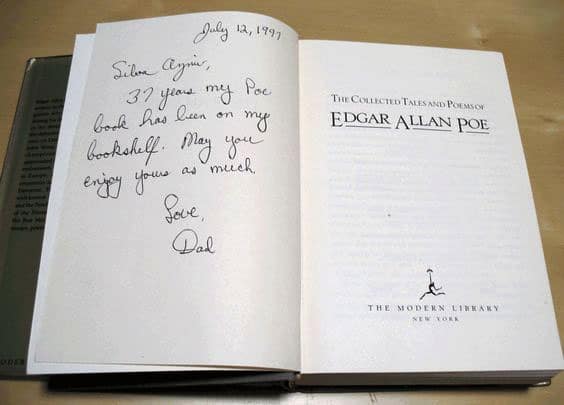 July 12, 1997
37 years my Poe
book has been on my
bookshelf. May you
enjoy yours as much.
Love,
Dad
THE COLLECTED TALES AND POEMS OF
EDGAR ALLAN POE
THE MODERN LIBRARY
NEW YORK